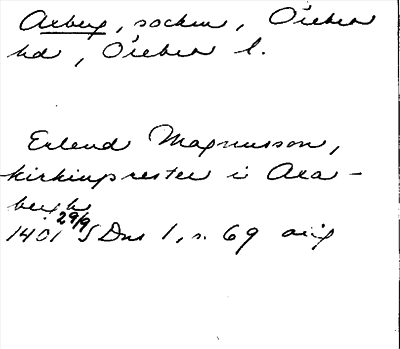 Axberg, socken, Örebro
hd, Örebro l.
Erlend Magnusson,
kirkinprester i Axa-
bergh
29/9
1401 SDns 1, s. 69 orig